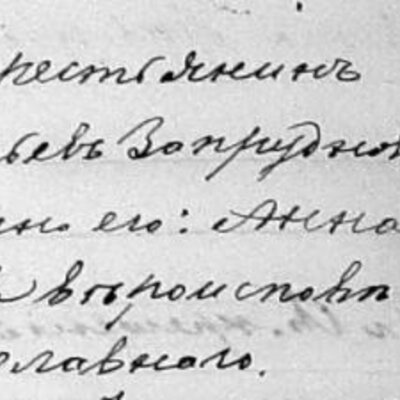 рестьянинъ
ьевъ Запруднов
его: Анна
вѣроисповѣ
ославнаго.